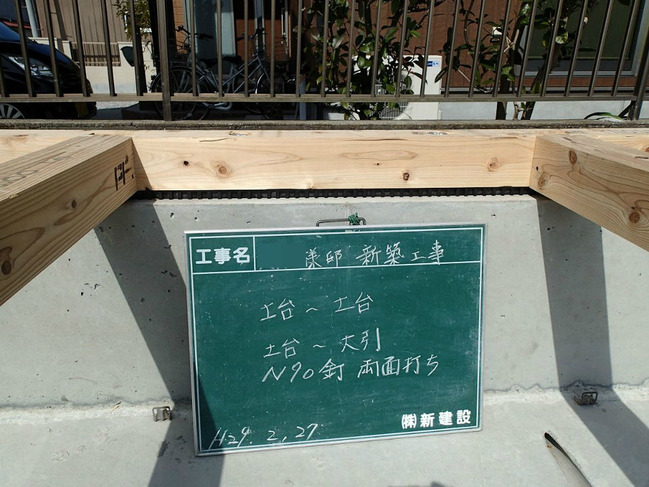 工事名 様邸 新築工事
土台～土台
土台～大引
N90釘 両面打ち
H29.2.27
㈱新建設